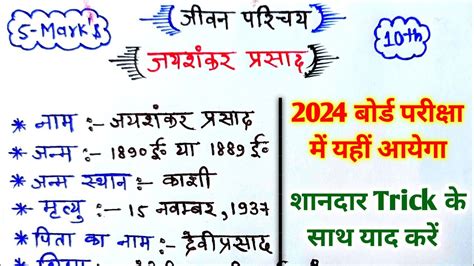 5-Mark's
जीवन परिचय
10th
जयशंकर प्रसाद
* नाम :- जयशंकर प्रसाद
* जन्म :- 1890 ई० या 1889 ई०
* जन्म स्थान :- काशी
* मृत्यु :- 15 नवम्बर, 1937
* पिता का नाम :- देवीप्रसाद
2024 बोर्ड परीक्षा
में यहीं आयेगा
शानदार Trick के
साथ याद करें